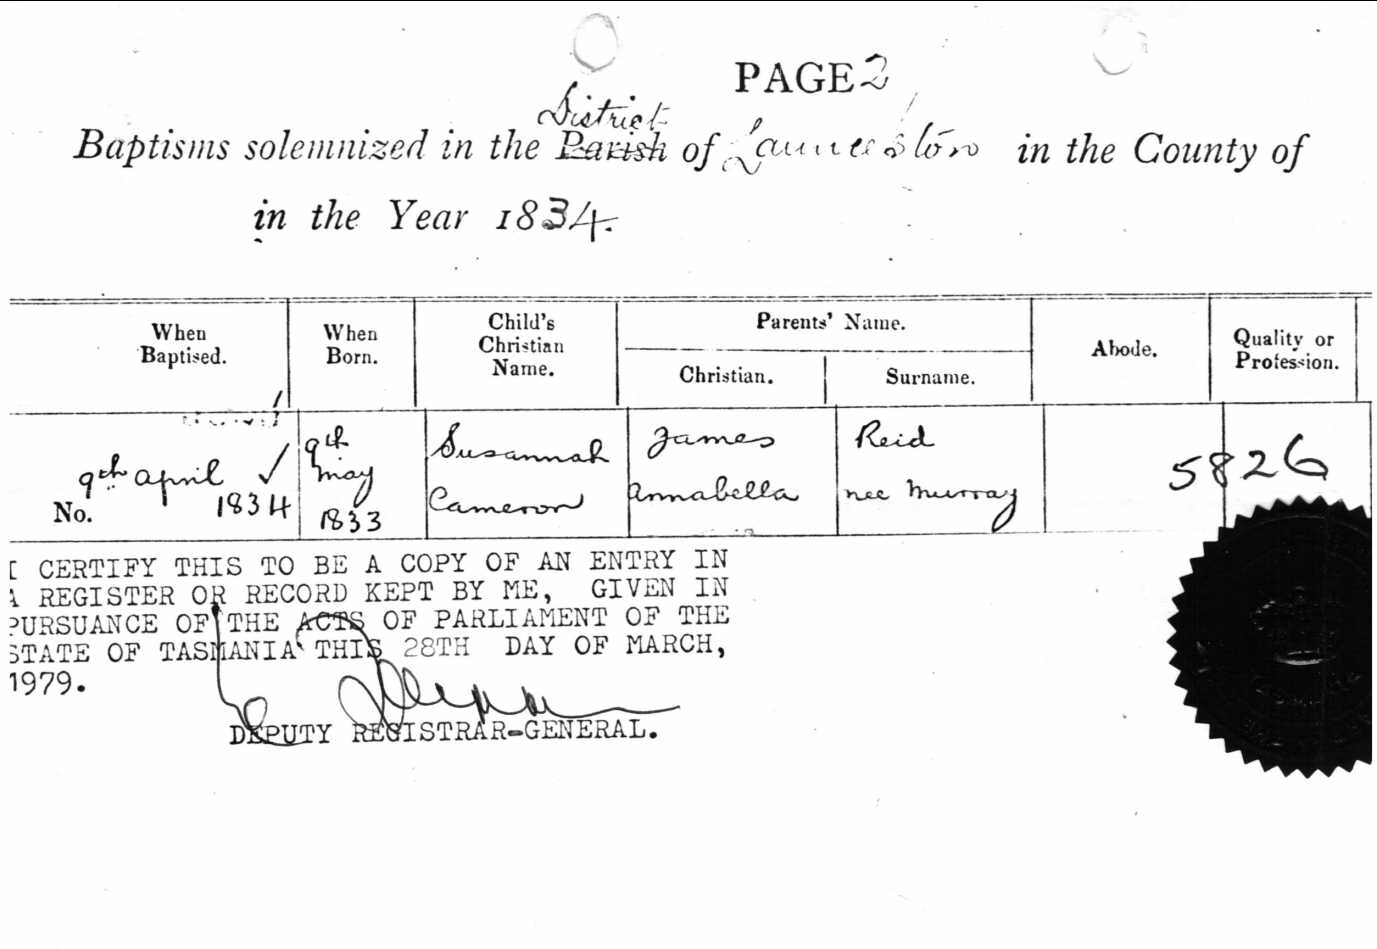 PAGE 2
District
Baptisms solemnized in the Parish of Launceston in the County of
in the Year 1834.
When Baptised.
When Born.
Child's Christian Name.
Parents' Name.
Christian.
Surname.
Abode.
Quality or Profession.
9th april 1834
No.
9th may 1833
Susannah Cameron
James
Annabella
Reid
nee Murray
5826
I CERTIFY THIS TO BE A COPY OF AN ENTRY IN
A REGISTER OR RECORD KEPT BY ME, GIVEN IN
PURSUANCE OF THE ACTS OF PARLIAMENT OF THE
STATE OF TASMANIA THIS 28TH DAY OF MARCH,
1979.
DEPUTY REGISTRAR-GENERAL.